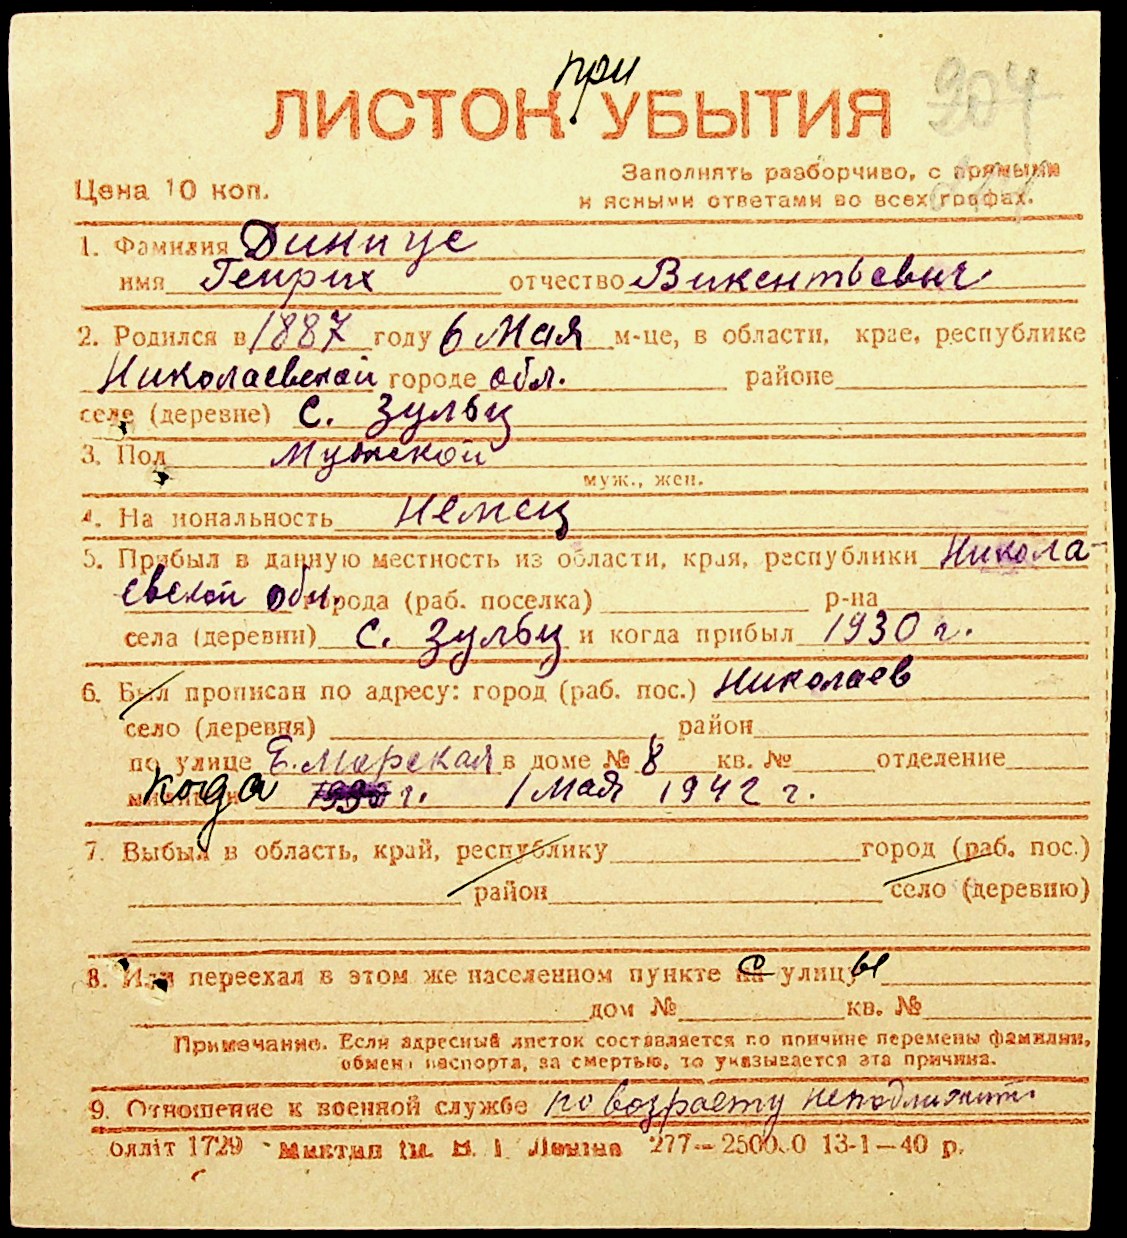 при
ЛИСТОК УБЫТИЯ
204
Цена 10 коп.
Заполнять разборчиво, с прямыми
и ясными ответами во всех графах.
1. Фамилия Диннус
имя Генрих отчество Викентьевич
2. Родился в 1887 году 6 Мая м-це, в области, крае, республике
Николаевской городе обл. районе
селе (деревне) с. Зульц
3. Пол Мужской
муж., жен.
4. На иональность Немец
5. Прибыл в данную местность из области, края, республики Никола-
евской обл. города (раб. поселка) р-на
села (деревни) с. Зульц и когда прибыл 1930 г.
6. Был прописан по адресу: город (раб. пос.) Николаев
село (деревня) район
по улице Б. Морская в доме № 8 кв. № отделение
когда 1930 г. 1 мая 1942 г.
7. Выбыл в область, край, республику город (раб. пос.)
район село (деревню)
8. Или переехал в этом же населенном пункте с улицы
дом № кв. №
Примечание. Если адресный листок составляется по причине перемены фамилии,
обмена паспорта, за смертью, то указывается эта причина.
9. Отношение к военной службе по возрасту неподлижит.
Олліт 1729 Ленина 277— 13-1—40 р.